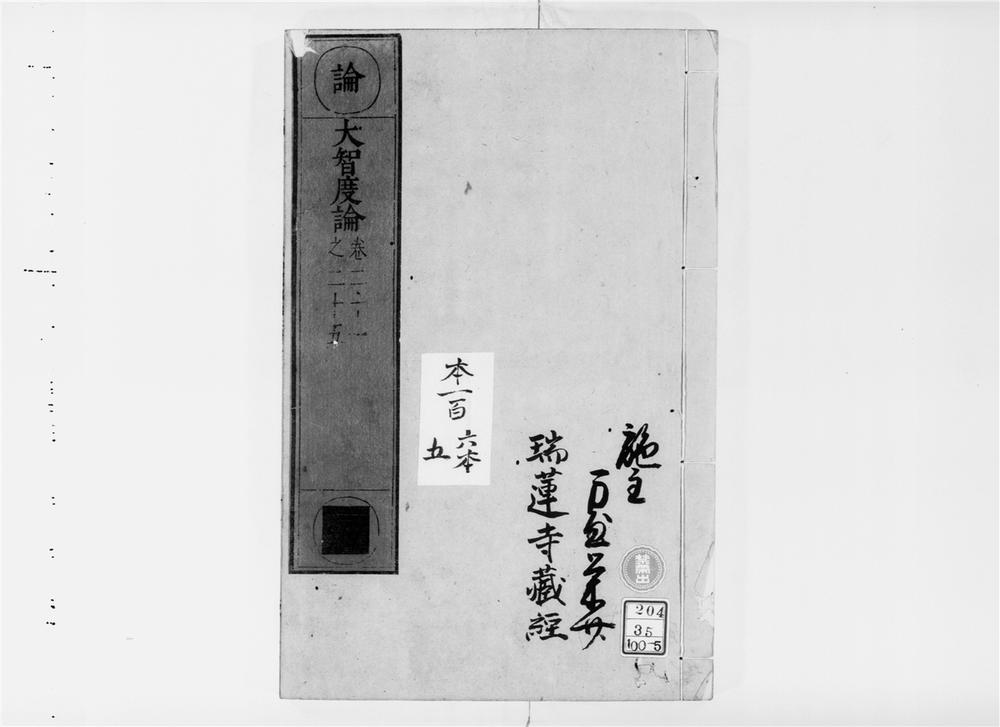 論
大智度論
卷二十一
之二十五
本一百
六本
五
施主
瑞蓮寺藏經
禁帶出
204
35
100-5